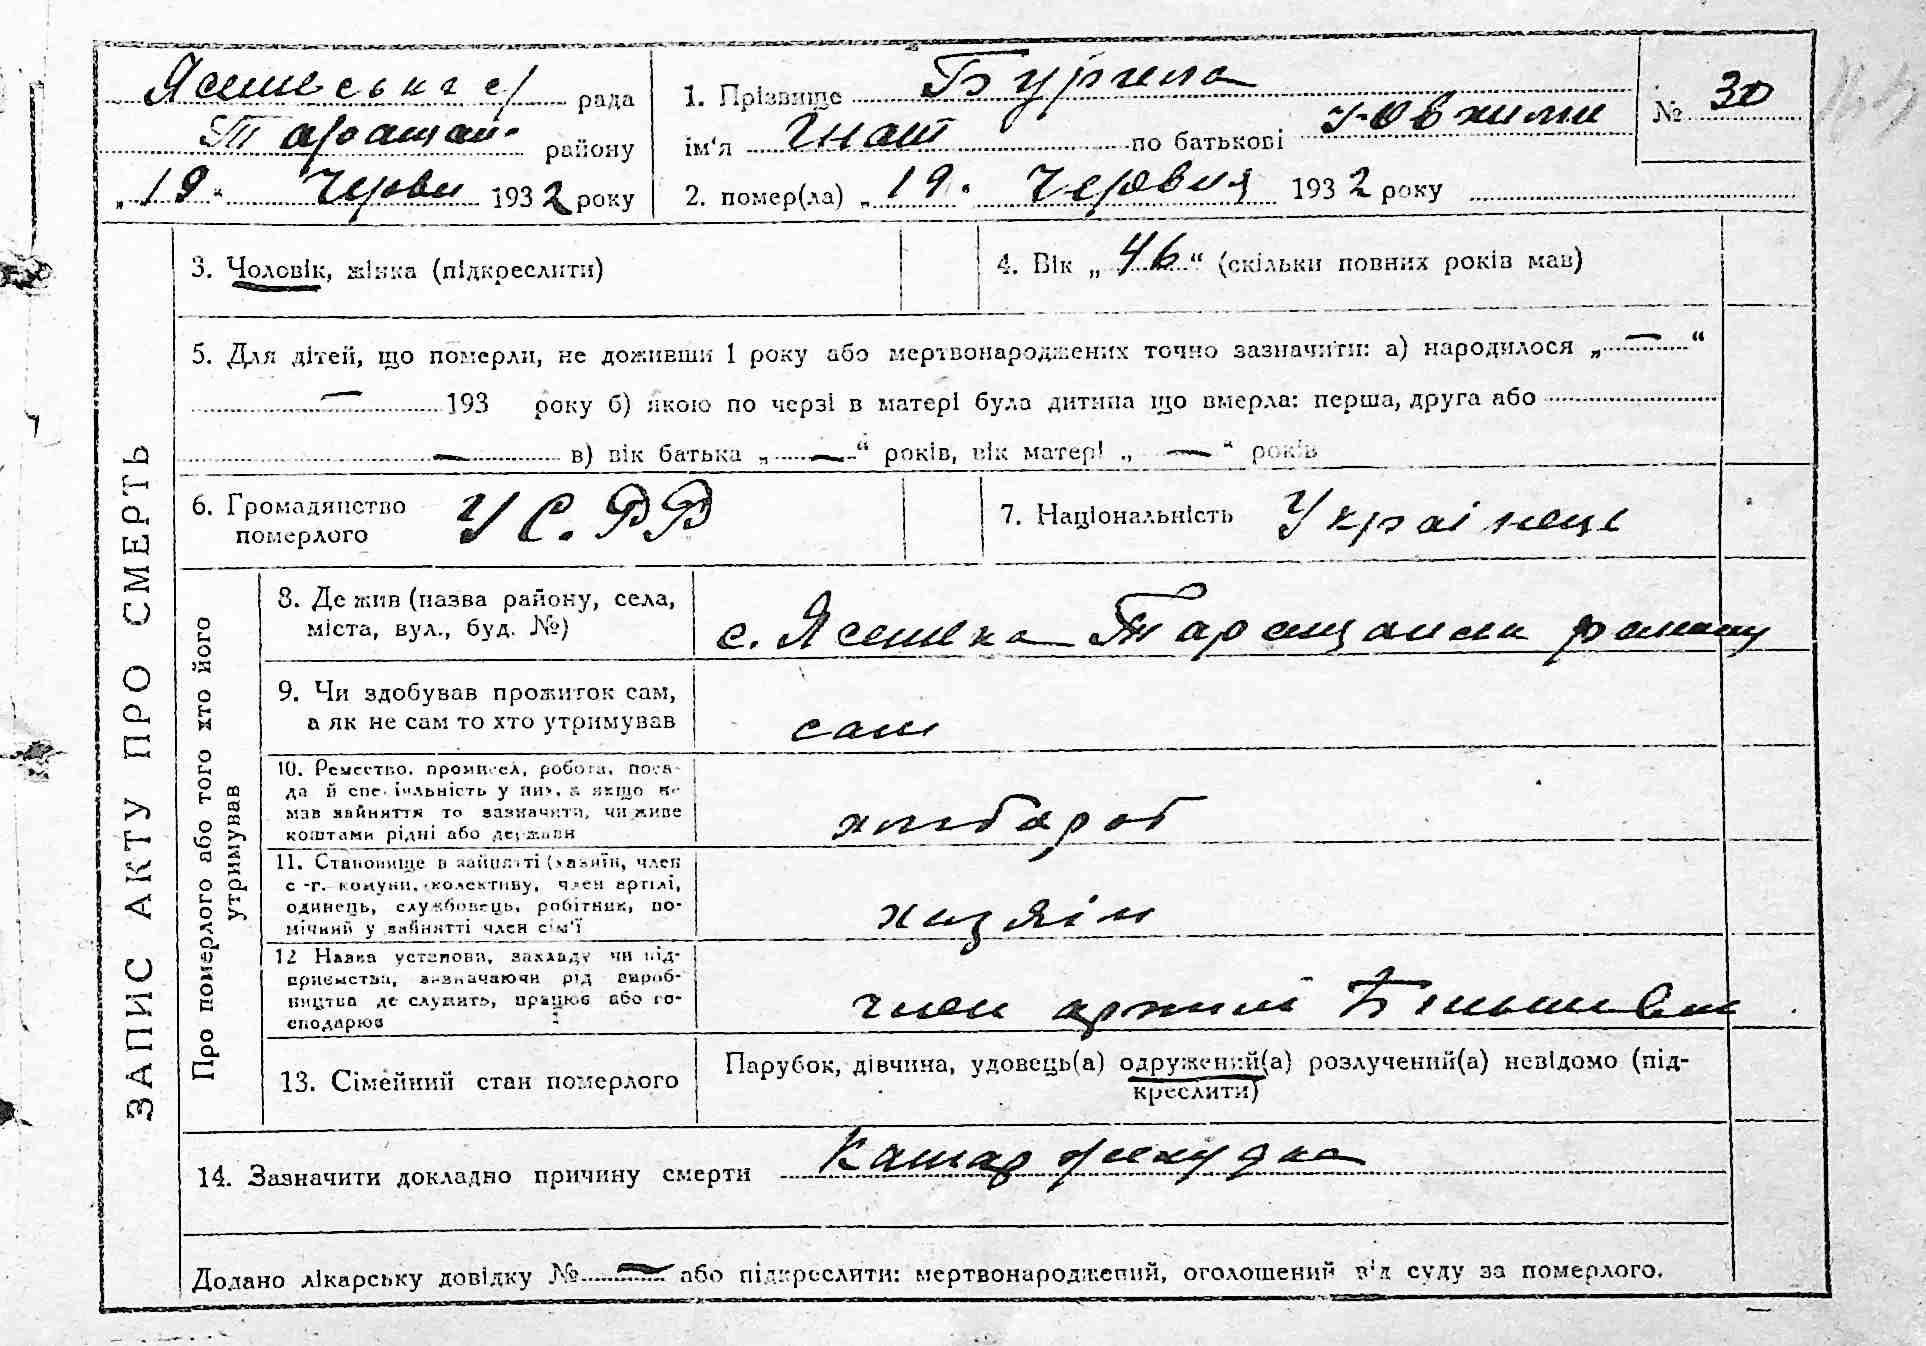 Ясенська с/ рада
Таращан- району
„19“ Червн 1932 року
1. Прізвище Бургела
ім'я Гнат по батькові Ювхими
2. помер(ла) „19. Червня 1932 року
№ 30
ЗАПИС АКТУ ПРО СМЕРТЬ
3. Чоловік, жінка (підкреслити)
4. Вік „46“ (скільки повних років мав)
5. Для дітей, що померли, не доживши 1 року або мертвонароджених точно зазначити: а) народилося „—“
— 193 року б) якою по черзі в матері була дитина що вмерла: перша, друга або
— в) вік батька „—“ років, вік матері „—“ років
6. Громадянство
померлого
УС.РР
7. Національність Українець
Про померлого або того хто його
утримував
8. Де жив (назва району, села,
міста, вул., буд. №)
с. Ясенка Таращанськ району
9. Чи здобував прожиток сам,
а як не сам то хто утримував
сам
10. Ремество, промисел, робота, поса-
да й спеціяльність у них, а якщо не
мав зайняття то зазначити, чи живе
коштами рідні або держави
хлібороб
11. Становище в зайнятті (хазяїн, член
с.-г. комуни, колективу, член артілі,
одинець, службовець, робітник, по-
мічний у зайнятті член сім'ї
хазяїн
12 Назва установи, закладу чи під-
приємства, зазначаючи рід вироб-
ництва де служить, працює або го-
сподарює
член артілі Більшовик
13. Сімейний стан померлого
Парубок, дівчина, удовець(а) одружений(а) розлучений(а) невідомо (під-
креслити)
14. Зазначити докладно причину смерти Катар желудка
Додано лікарську довідку № — або підкреслити: мертвонароджений, оголошений від суду за померлого.